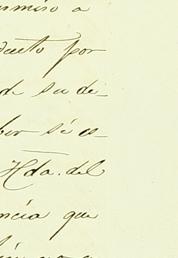 ermiso a
ducto por
de su de-
ber si es
Hda. del
ncia que